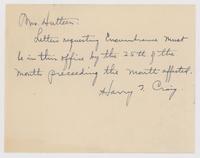 Mrs. Hutteen:
Letters requesting Encumbrance must
be in this office by the 25th of the
month preceding the month affected.
Harry T. Craig